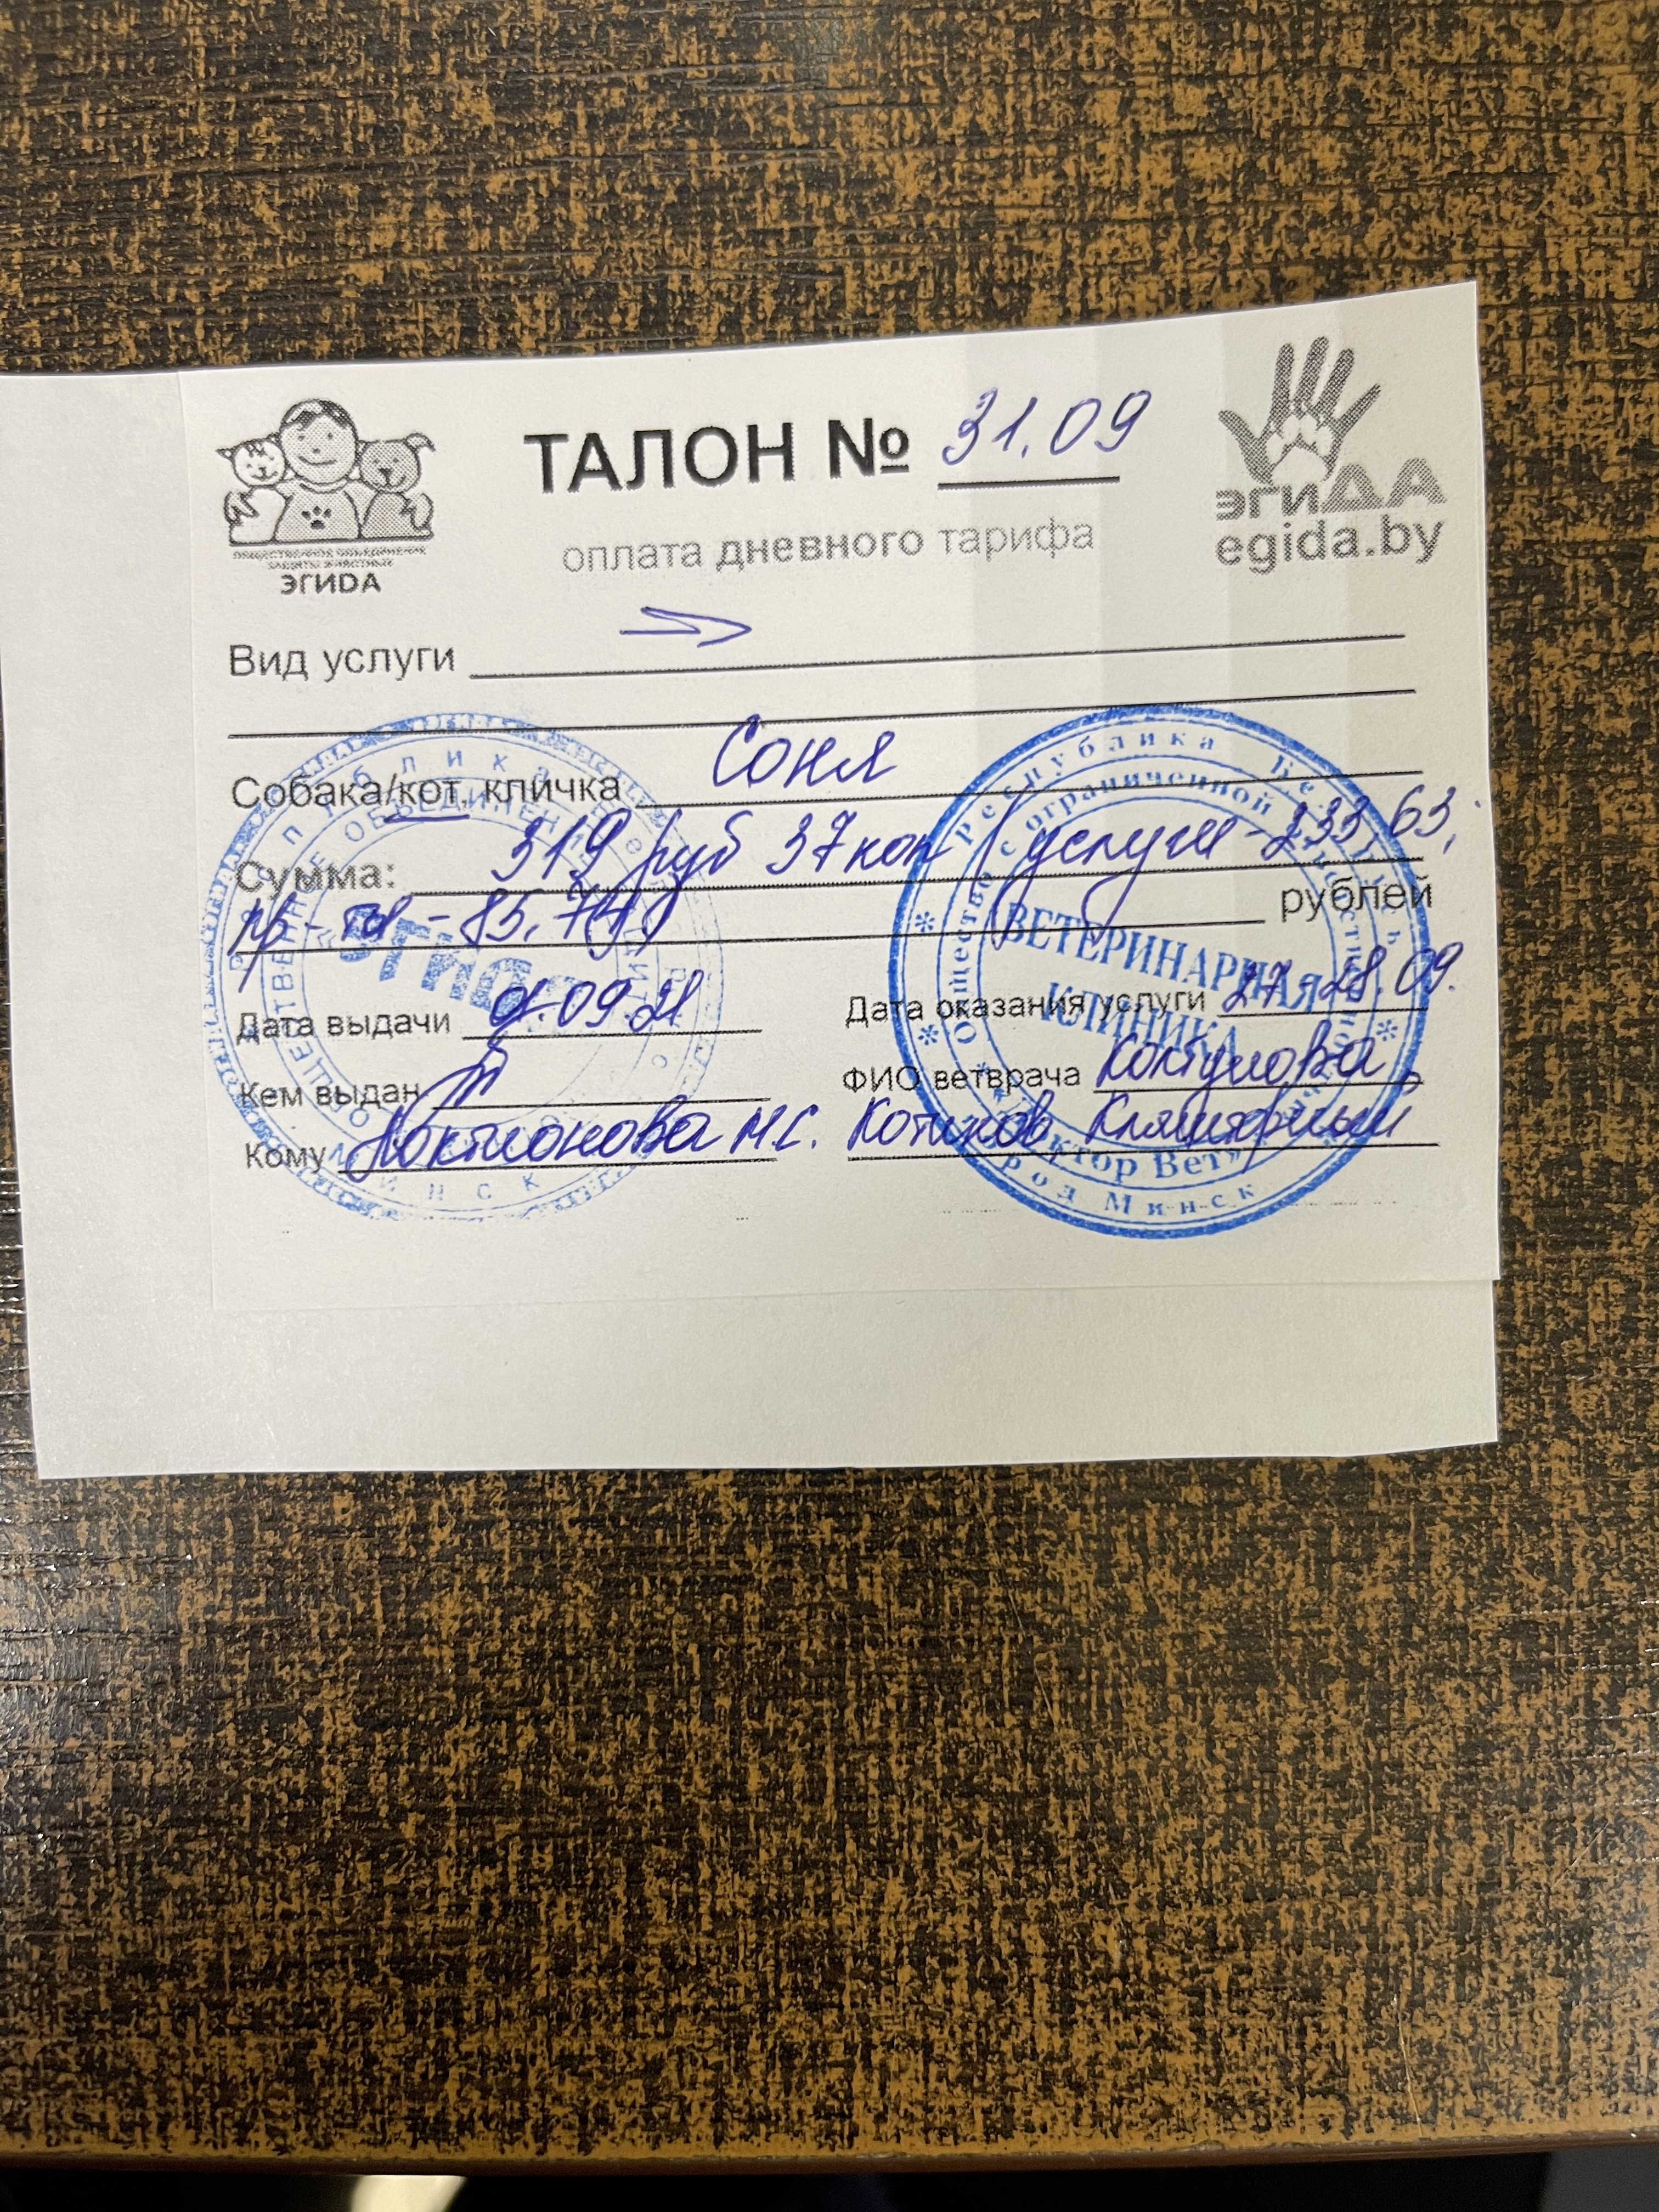 ТАЛОН № 31.09
оплата дневного тарифа
ОБЩЕСТВЕННОЕ ОБЪЕДИНЕНИЕ
ЗАЩИТЫ ЖИВОТНЫХ
ЭГИDА
ЭГИДА
egida.by
Вид услуги
Собака/кот, кличка Соня
Сумма: 319 руб 37 коп (услуги - 233,63;
пр-ты - 85,74) рублей
Дата выдачи .09.21
Дата оказания услуги 27-28.09.
Кем выдан
ФИО ветврача
Кому Локтионова М.С.
Котиков Кляшторный
Республика Беларусь
Общество с ограниченной ответственностью
ВЕТЕРИНАРНАЯ
КЛИНИКА
«Доктор Вет»
город Минск
«ЭГИДА»